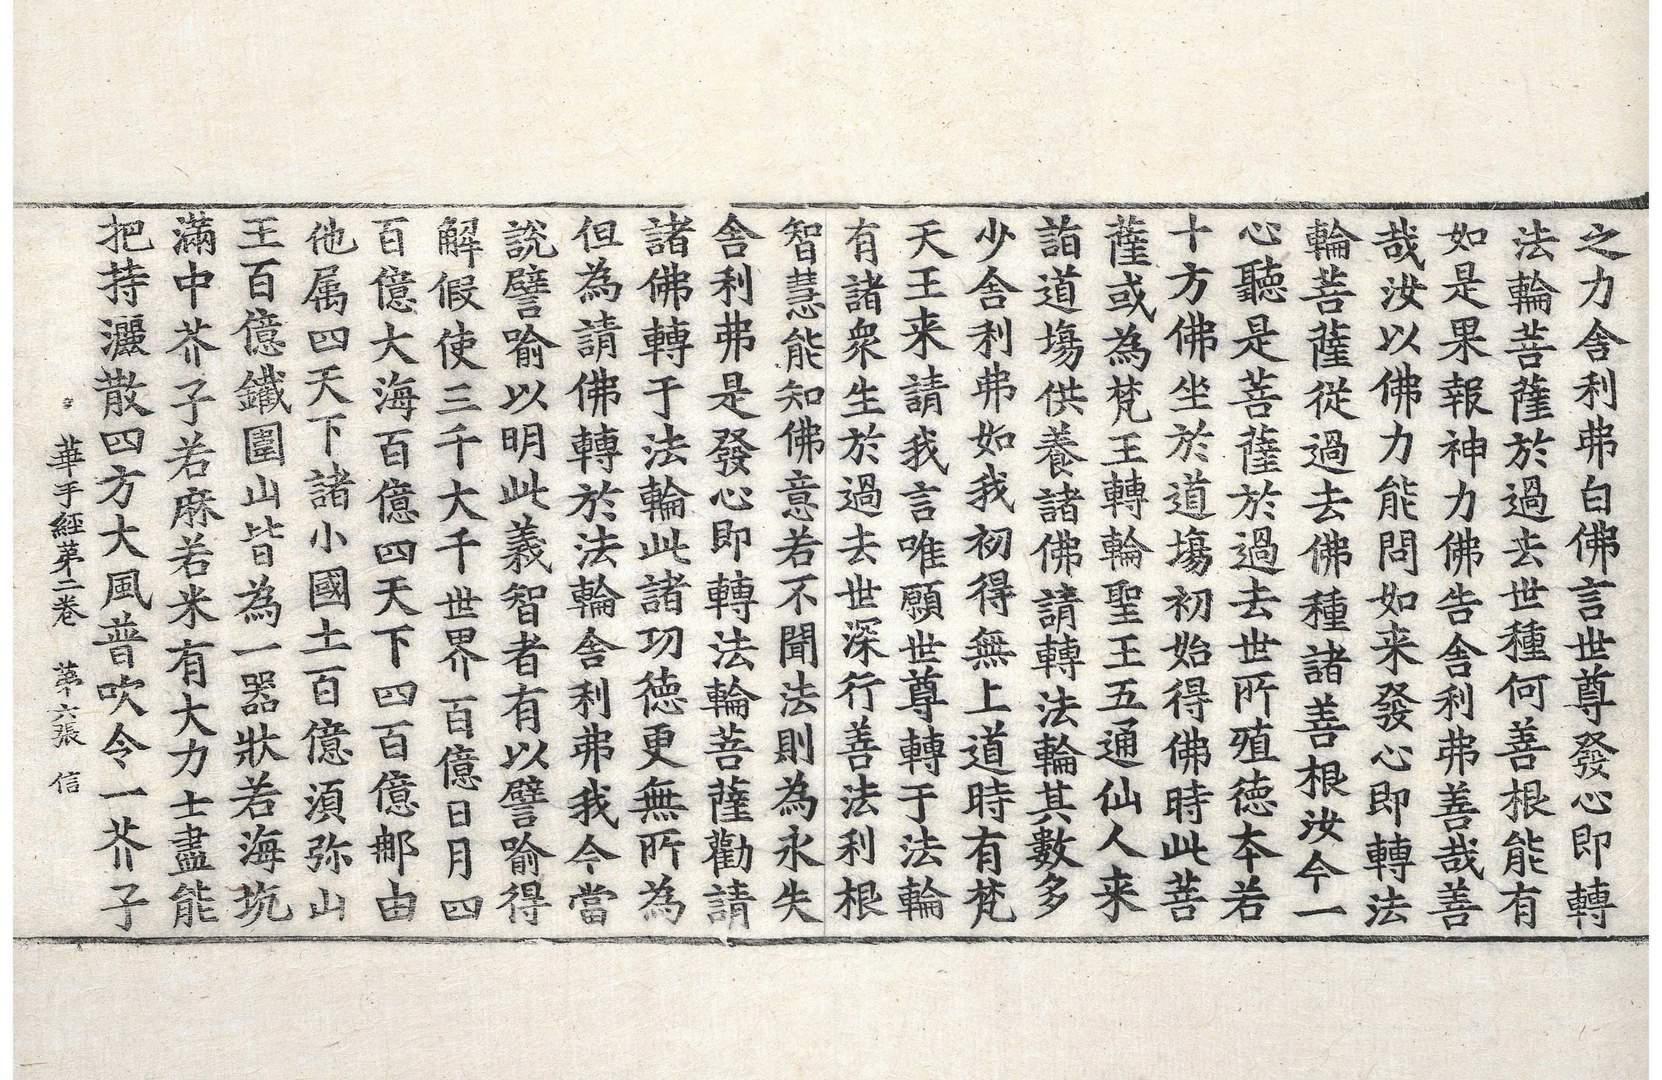 之力舍利弗白佛言世尊發心即轉
法輪菩薩於過去世種何善根能有
如是果報神力佛告舍利弗善哉善
哉汝以佛力能問如来發心即轉法
輪菩薩從過去佛種諸善根汝今一
心聽是菩薩於過去世所殖德本若
十方佛坐於道場初始得佛時此菩
薩或為梵王轉輪聖王五通仙人来
詣道場供養諸佛請轉法輪其數多
少舍利弗如我初得無上道時有梵
天王来請我言唯願世尊轉于法輪
有諸衆生於過去世深行善法利根
智慧能知佛意若不聞法則為永失
舍利弗是發心即轉法輪菩薩勸請
諸佛轉于法輪此諸功德更無所為
但為請佛轉於法輪舍利弗我今當
說譬喻以明此義智者有以譬喻得
解假使三千大千世界百億日月四
百億大海百億四天下四百億郍由
他属四天下諸小國土百億須弥山
王百億鐵圍山皆為一器狀若海坑
滿中芥子若麻若米有大力士盡能
把持灑散四方大風普吹令一芥子
華手經第二卷 第十六張 信